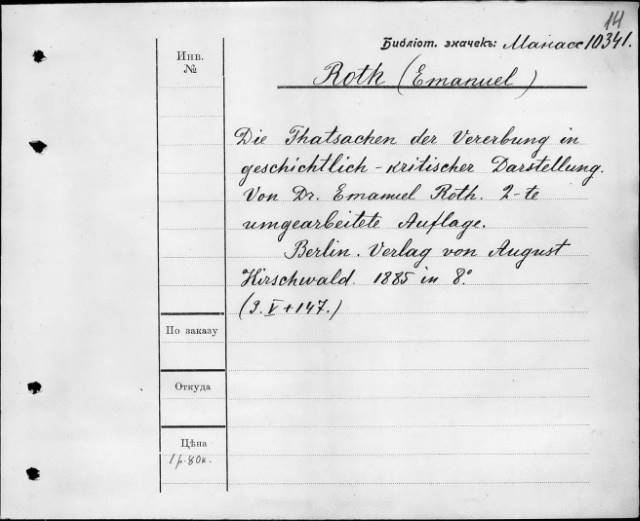 14
Библіот. значекъ: Манасс 10341.
Инв.
№
Roth (Emanuel)
Die Thatsachen der Vererbung in
geschichtlich-kritischer Darstellung.
Von Dr. Emanuel Roth. 2-te
umgearbeitete Auflage.
Berlin. Verlag von August
Hirschwald. 1885 in 8.°
(3. V+147.)
По заказу
Откуда
Цѣна
1 р. 80 к.